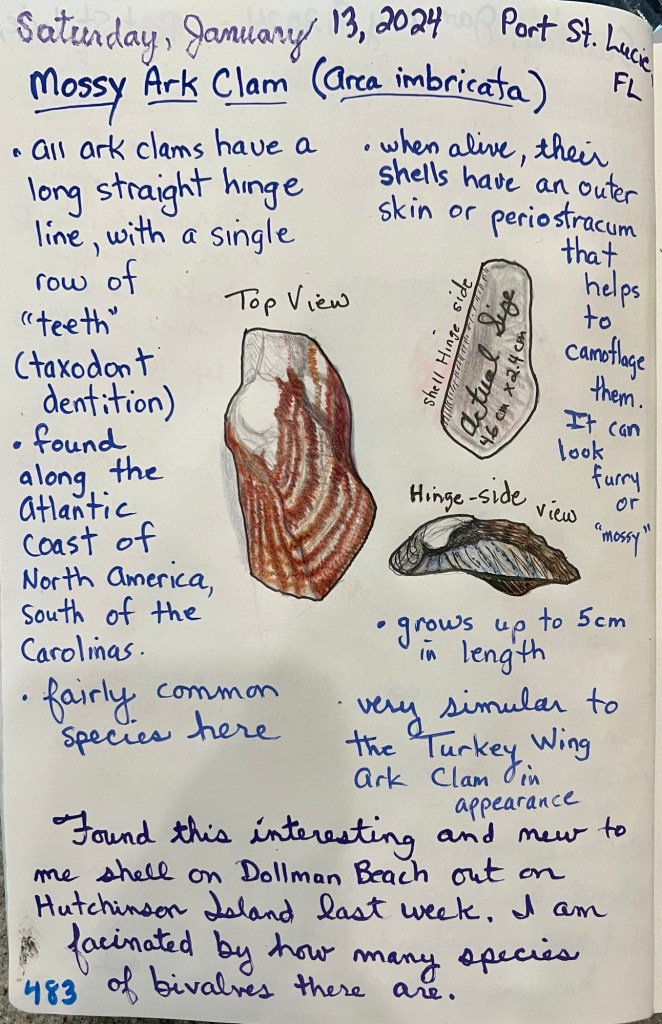 Saturday, January 13, 2024
Port St. Lucie,
FL
Mossy Ark Clam (Arca imbricata)
• all ark clams have a
long straight hinge
line, with a single
row of
"teeth"
(taxodont
dentition)
• found
along the
Atlantic
coast of
North America,
South of the
Carolinas.
• fairly common
species here
Top View
• when alive, their
shells have an outer
skin or periostracum
that
helps
to
camoflage
them.
It can
look
furry
or
"mossy"
Shell Hinge side
Actual Size
4.6 cm x 2.4 cm
Hinge-side
view
• grows up to 5cm
in length
• very simular to
the Turkey Wing
Ark Clam in
appearance
Found this interesting and new to
me shell on Dollman Beach out on
Hutchinson Island last week. I am
facinated by how many species
of bivalves there are.
483